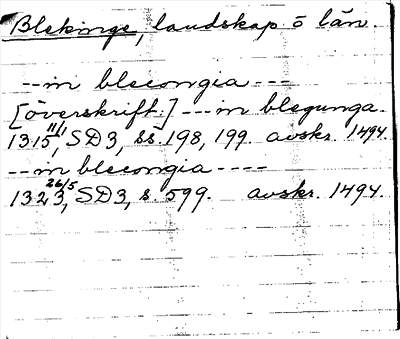 Blekinge, landskap ō län.
--in blecongia ---
[överskrift:] --- in blegunga.
1315 11/1, SD3, ss. 198, 199. avskr. 1494.
--in blecongia ----
1323 26/5, SD3, s. 599. avskr. 1494.